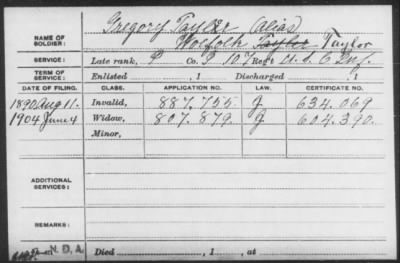 NAME OF SOLDIER: Gregory Taylor (alias)
Wolfolk Taylor Taylor
SERVICE: Late rank, P Co. I 107 Reg't U.S.C. Inf.
TERM OF SERVICE: Enlisted , 1 Discharged , 1
DATE OF FILING. CLASS. APPLICATION NO. LAW. CERTIFICATE NO.
1890 Aug 11. Invalid, 887.755. J. 634.069
1904 June 4 Widow, 807.879. J 604.390.
Minor,
ADDITIONAL SERVICES:
REMARKS:
N.D.A.
Died , 1 , at